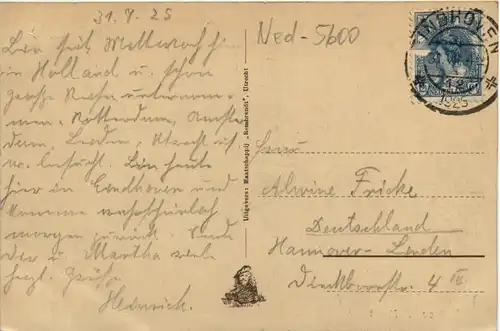 31.8.25
Bin seit Mittwoch hier
in Holland u. schon
große Reise unternom-
men. Rotterdam, Amster-
dam, Leiden, Utrecht ist
besucht. Bin heute
hier in Eindhoven und
komme wahrscheinlich
morgen zurück.
Dir u. Martha viele
herzl. Grüße
Heinrich.
Ned-5600
Uitgevers: Maatschappij „Rembrandt", Utrecht
EINDHOVEN
1925
Frau
Alwine Fricke
Deutschland
Hannover-Linden
4 III